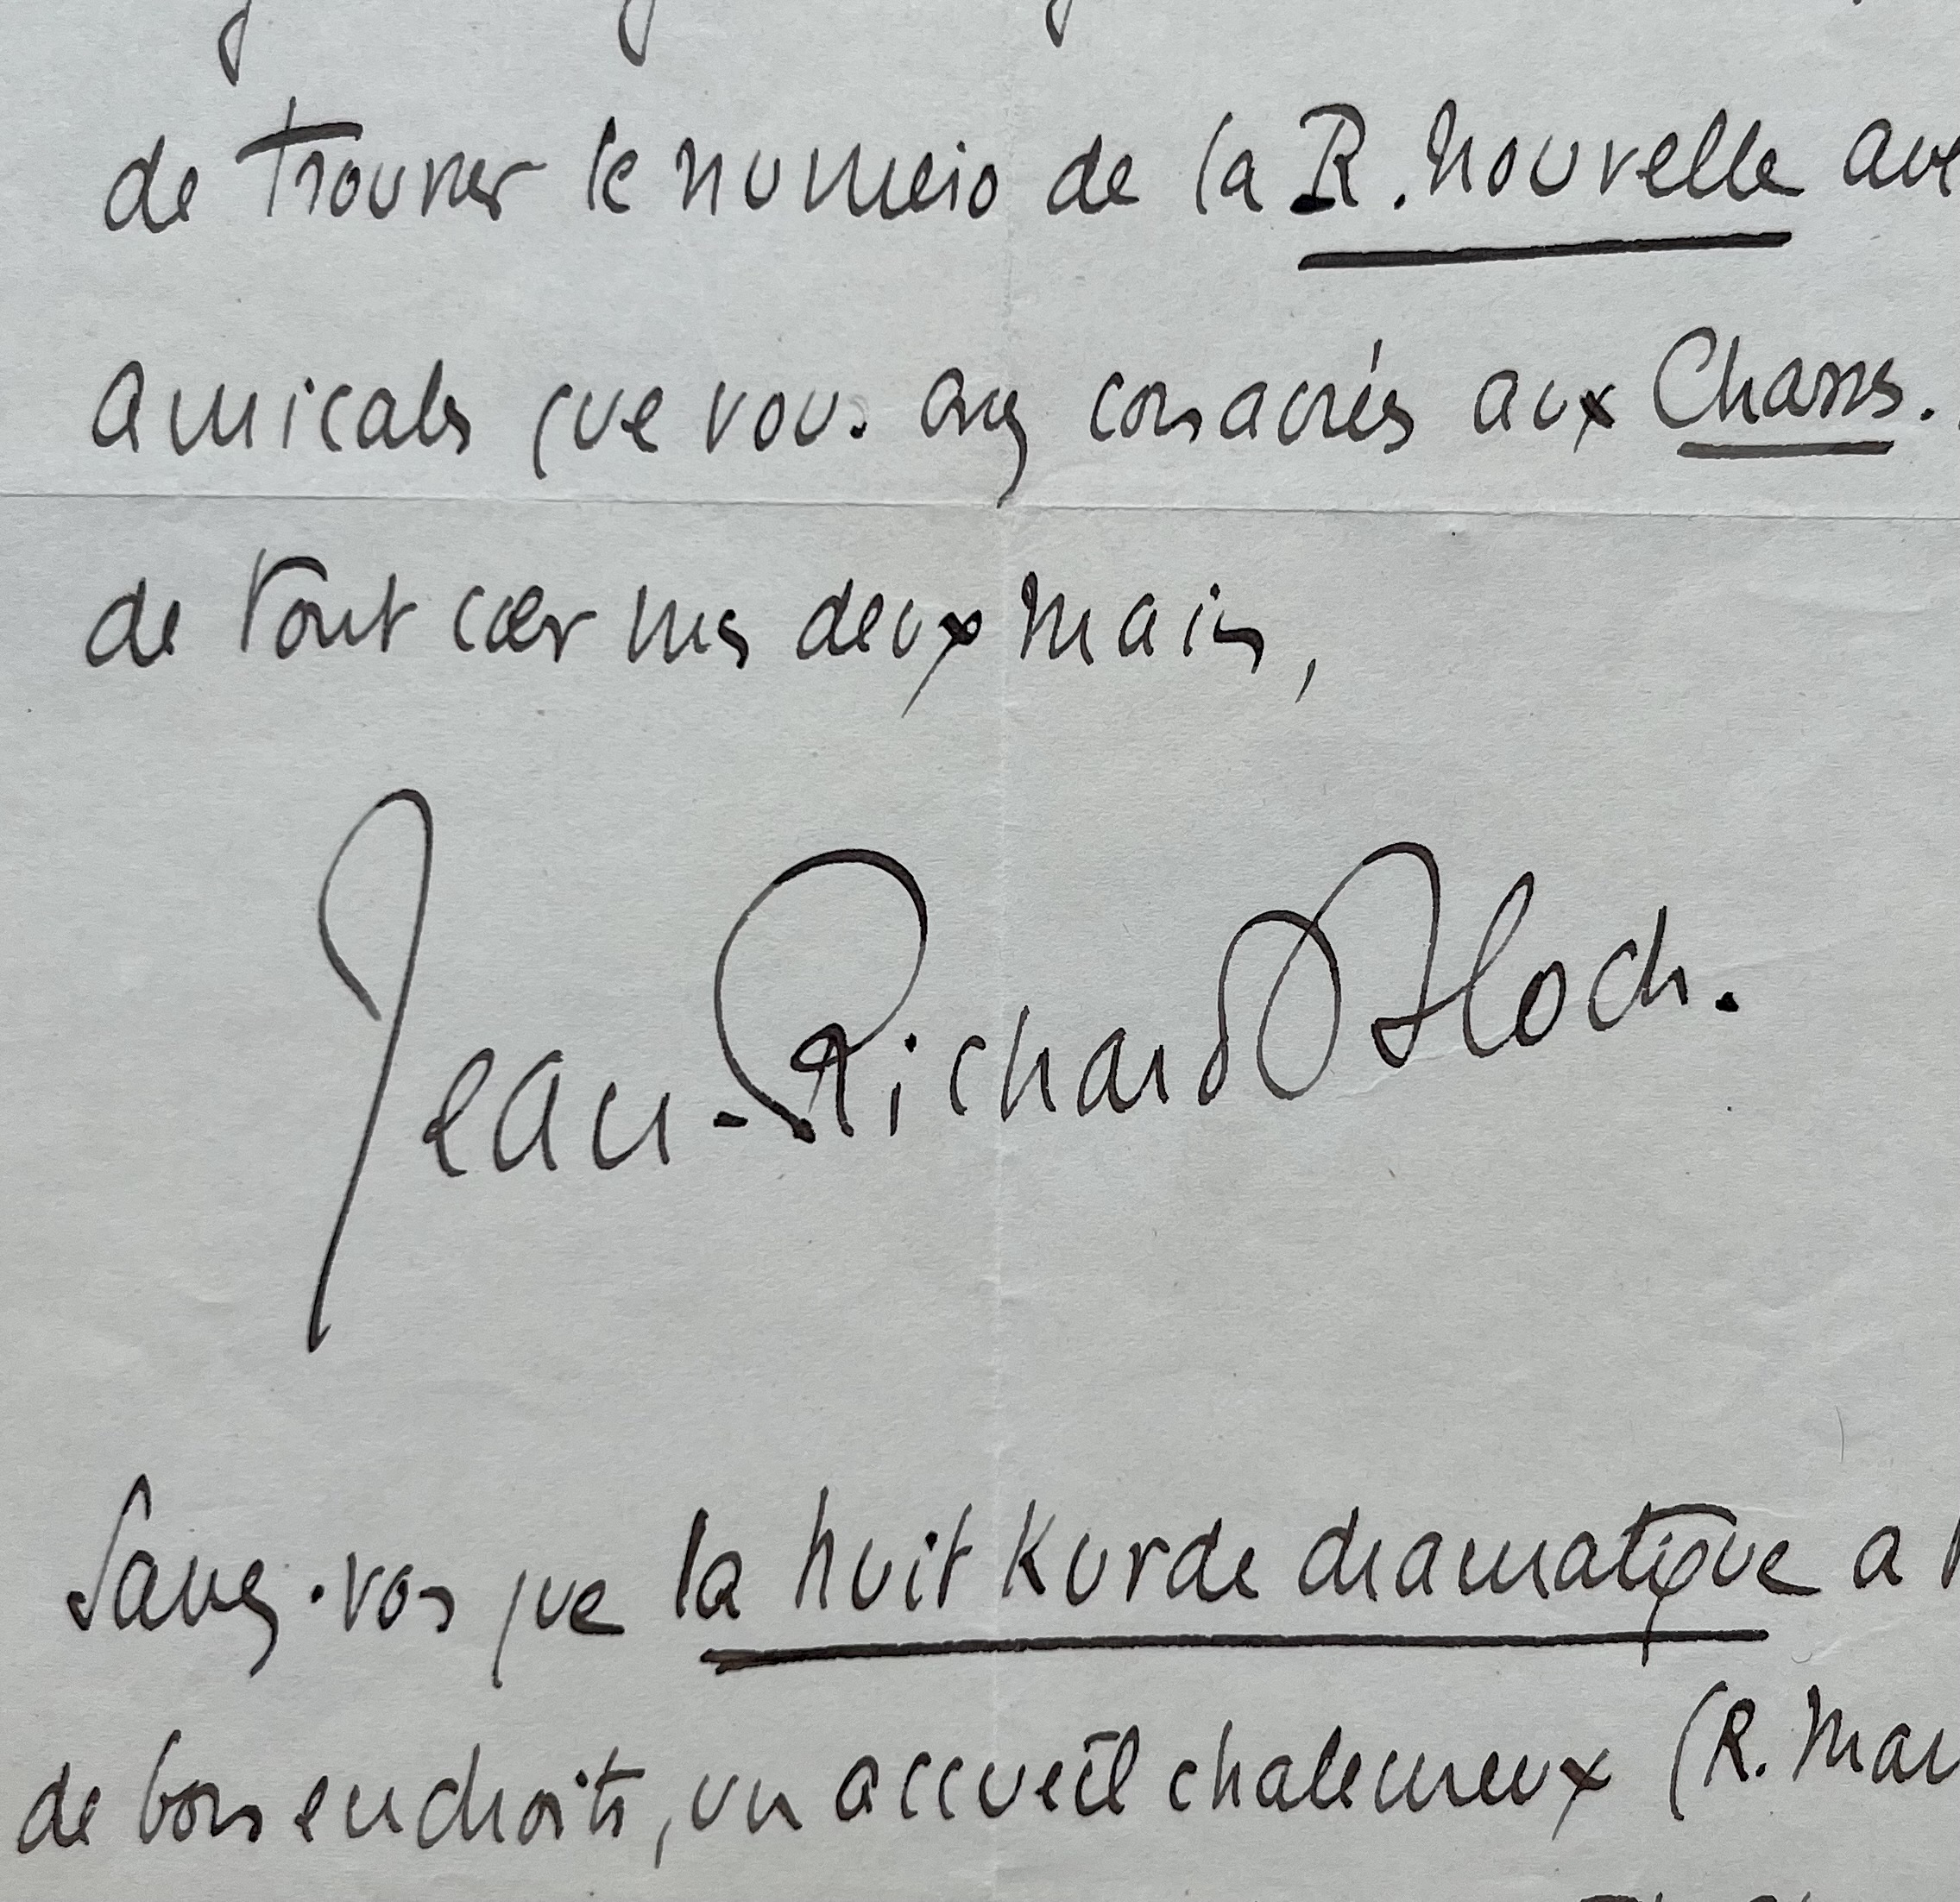 de trouver le numéro de la R. Nouvelle ave
amicales que vous avez consacrés aux Chasses.
de tout cœur mes deux mains,
Jean-Richard Bloch.
Savez-vous que la Nuit Kurde dramatique a
de bons endroits, un accueil chaleureux (R. Mar